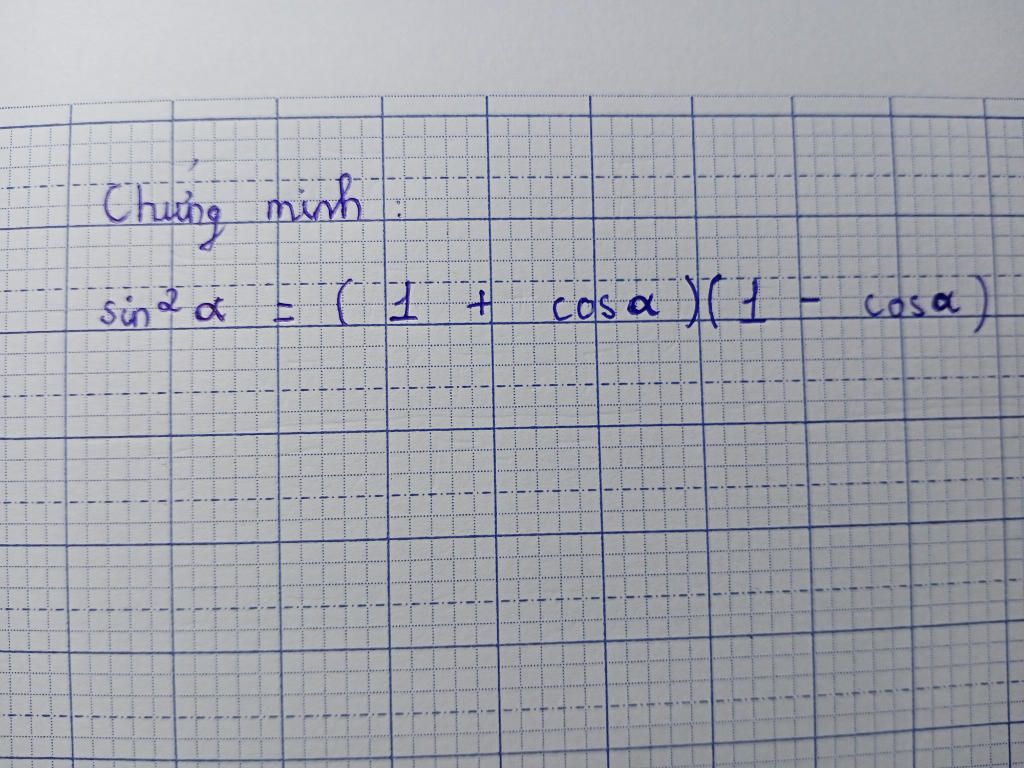 Chứng minh :
sin² α = ( 1 + cos α )( 1 - cos α )